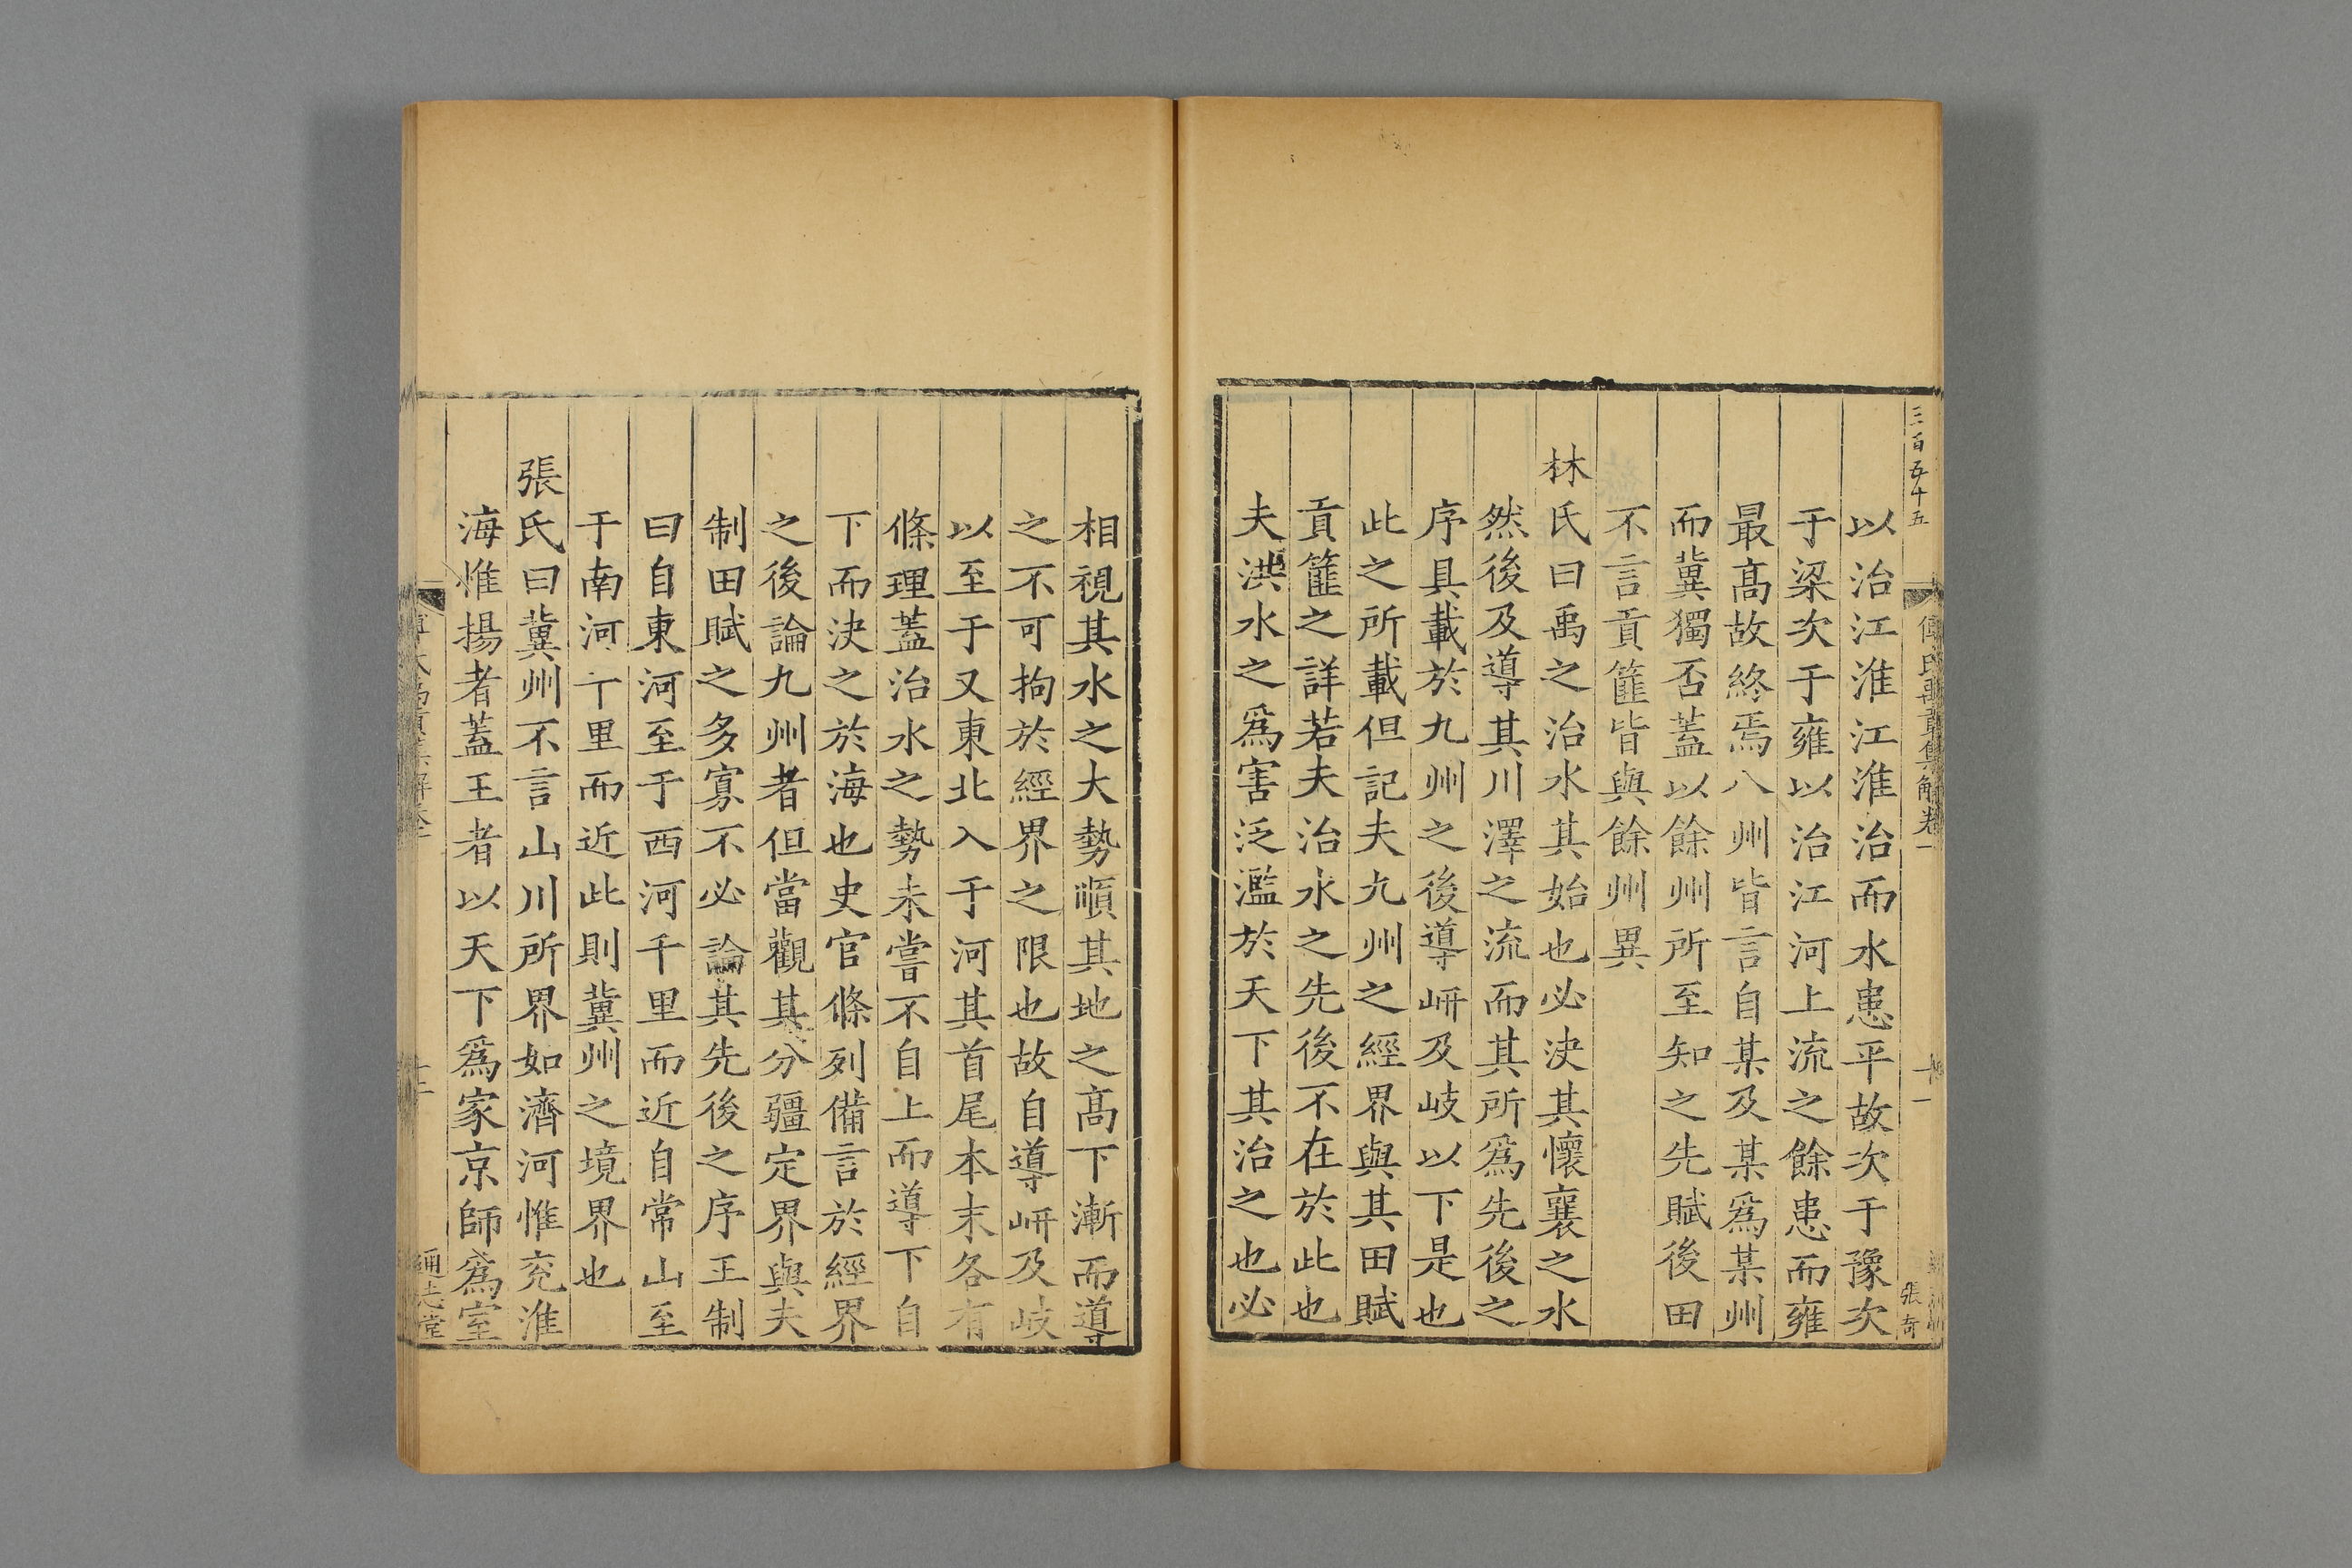 三百五十五
傅氏禹貢集解卷一
十一
張奇
以治江淮江淮治而水患平故次于豫次
于梁次于雍以治江河上流之餘患而雍
最髙故終焉八州皆言自某及某爲某州
而冀獨否蓋以餘州所至知之先賦後田
不言貢篚皆與餘州異
林氏曰禹之治水其始也必決其懷襄之水
然後及導其川澤之流而其所爲先後之
序具載於九州之後導岍及岐以下是也
此之所載但記夫九州之經界與其田賦
貢篚之詳若夫治水之先後不在於此也
夫洪水之爲害泛濫於天下其治之也必
相視其水之大勢順其地之髙下漸而導
之不可拘於經界之限也故自導岍及岐
以至于又東北入于河其首尾本末各有
條理蓋治水之勢未嘗不自上而導下自
下而決之於海也史官條列備言於經界
之後論九州者但當觀其分疆定界與夫
制田賦之多寡不必論其先後之序王制
曰自東河至于西河千里而近自常山至
于南河千里而近此則冀州之境界也
張氏曰冀州不言山川所界如濟河惟兖淮
海惟揚者蓋王者以天下爲家京師爲室
通志堂